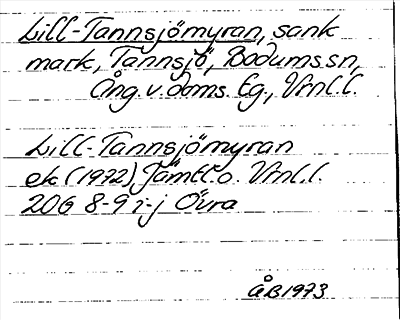 Lill-Tannsjömyran, sank
mark, Tannsjö, Bodums sn,
Ång. v. doms. lg., Vrnl. l.
Lill-Tannsjömyran
ek (1972) Jämtl. o. Vrnl. l.
20G 8-9 i-j Övra
ÅB 1973